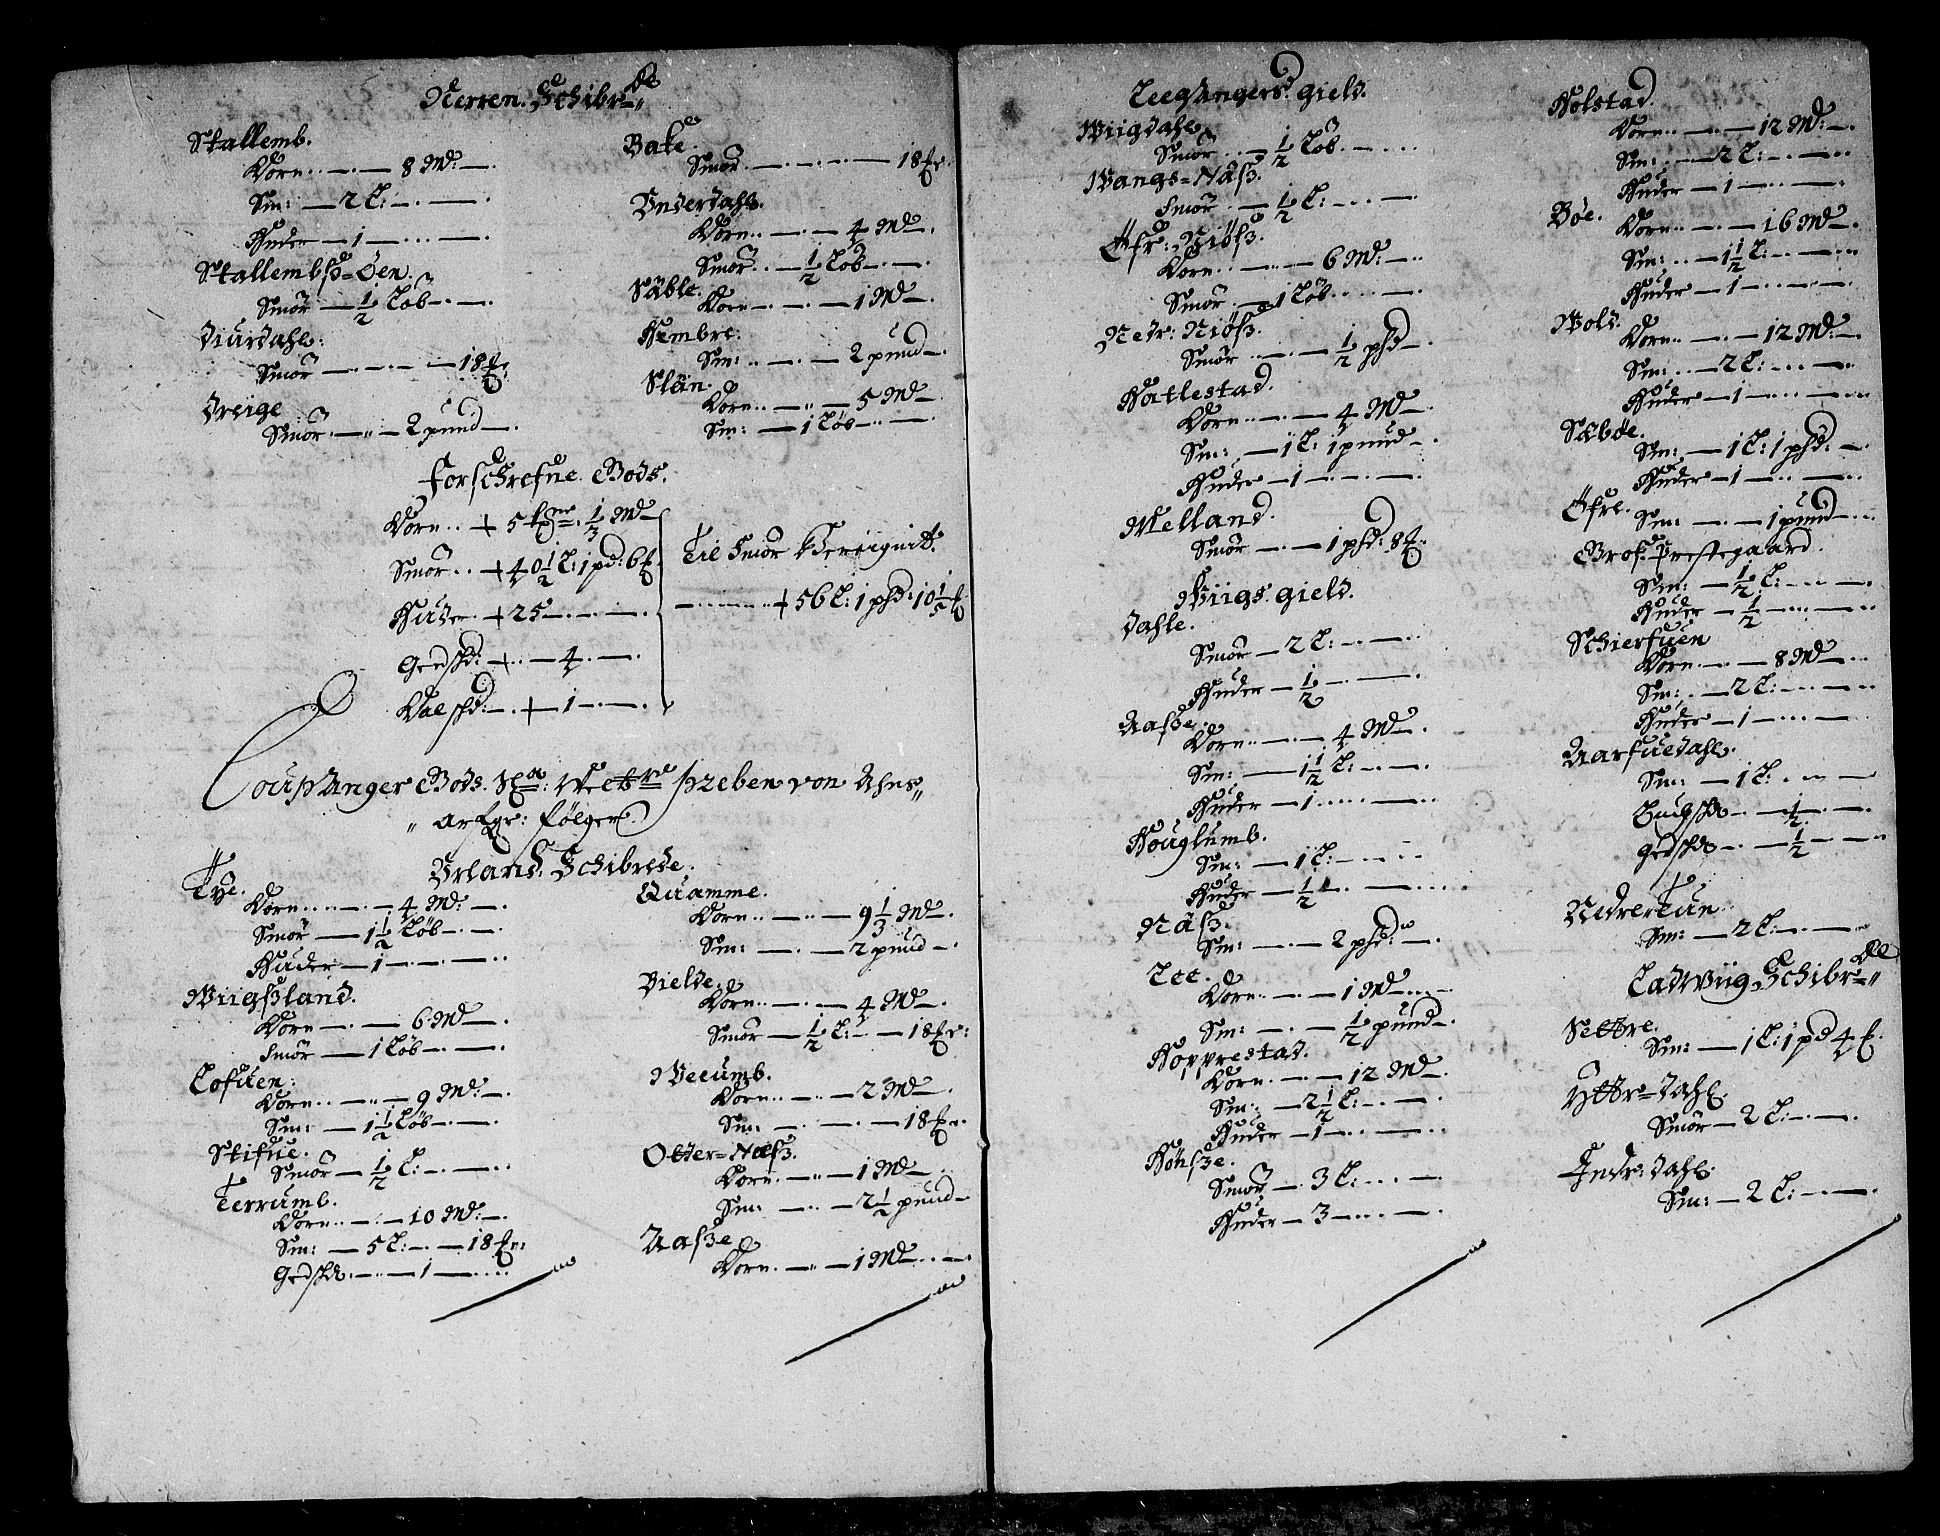 Nerren. Schibr=de
Stallemb.
Korn — 8 Md: —
Sm: — 2 L: —
Huder — 1 —
Stallembsß=Öen.
Smör — 1/2 Löb —
Diurdahl:
Smör — 18
Dreige
Smör — 2 pund —
Bake.
Smör — 18
Underdahl.
Korn — 4 Md —
Smör — 1/2 Löb —
Säble.
Korn — 1 Md —
Hembre.
Sm: — 2 pund —
Slän.
Korn — 5 Md —
Sm: — 1 Löb —
Forschrefne Gods.
Korn + 5 1/3 Md
Smör + 40 1/2 L: 1 pd: 6
Huder + 25 —
Gedsk: + — 4 —
Kalfsk: — + 1 —
Til Smör Bereignitt.
+ 56 L: 1 phd: 10 1/5
Caupanger Gods von Ahns„
„ar fölger.
Urland Schibrede.
Tye.
Korn — 4 Md: —
Smör — 1 1/2 Löb —
Huder — 1 —
Wiigßland.
Korn — 6 Md —
Smör — 1 Löb —
Lofuen:
Korn — 9 Md: —
Sm: — 1 1/2 Löb —
Stifue.
Smör — 1/2 L: —
Terrumb.
Korn — 10 Md: —
Sm: — 5 L: — 18
Gedsk: — 1 —
Quamme.
Korn — 9 1/3 Md —
Sm: — 2 pund —
Bielde.
Korn — 4 Md —
Smör — 1/2 L: — 18
Weeumb.
Korn — 2 Md —
Sm: — 18
Otter=Næsß.
Korn — 1 Md —
Sm: — 2 1/2 pund —
Aaße
Korn — 1 Md —
Leegangers gield.
Wiigdahl
Smör — 1/2 Löb —
Wangs=Näß.
Smör — 1/2 L: —
Öfr: Niöß.
Korn — 6 Md: —
Smör — 1 Löb —
Nedr: Niöß.
Smör — 1/2 phd —
Hatlestad.
Korn — 4 Md —
Sm: — 1 L: 1 pund —
Huder — 1 —
Melland.
Smör — 1 phd: 8
Wiigs gield.
Dahle.
Smör — 2 L: —
Huder — 1/2 —
Aaße.
Korn — 4 Md —
Sm: — 1 1/2 L: —
Huder — 1 —
Houglumb.
Sm: — 1 L: —
Huder — 1/2 —
Näß.
Sm: — 2 phd: —
Lee.
Korn — 1 Md —
Sm: — 1/2 pund —
Hopprestad.
Korn — 12 Md —
Sm: — 2 1/2 L: —
Huder — 1 —
Hönße.
Smör — 3 L: —
Huder — 3 —
Holstad.
Korn — 12 Md: —
Sm: — 2 L: —
Huder — 1 —
Böe.
Korn — 16 Md —
Sm: — 1 1/2 L: —
Huder — 1 —
Wold.
Korn — 12 Md: —
Sm: — 2 L: —
Huder — 1 —
Sæböe.
Sm: — 1 L: 1 phd: —
Huder — 1 —
Öfre.
Sm: — 1 pund —
Prestegaard.
Sm: — 1/2 L: —
Huder — 1/2 —
Schierfuen
Korn — 8 Md —
Sm: — 2 L: —
Huder — 1 —
Aarfuedahl.
Sm: — 1 L: —
Buchsk — 1/2 —
Gedsk — 1/2 —
Nedretun
Sm: — 2 L: —
Ladwiig Schibr=de
Settre.
Sm: — 1 L: 1 pd 4
Yttr=dahl.
Smör — 2 L: —
Indr: dahl.
Sm: — 2 L: —